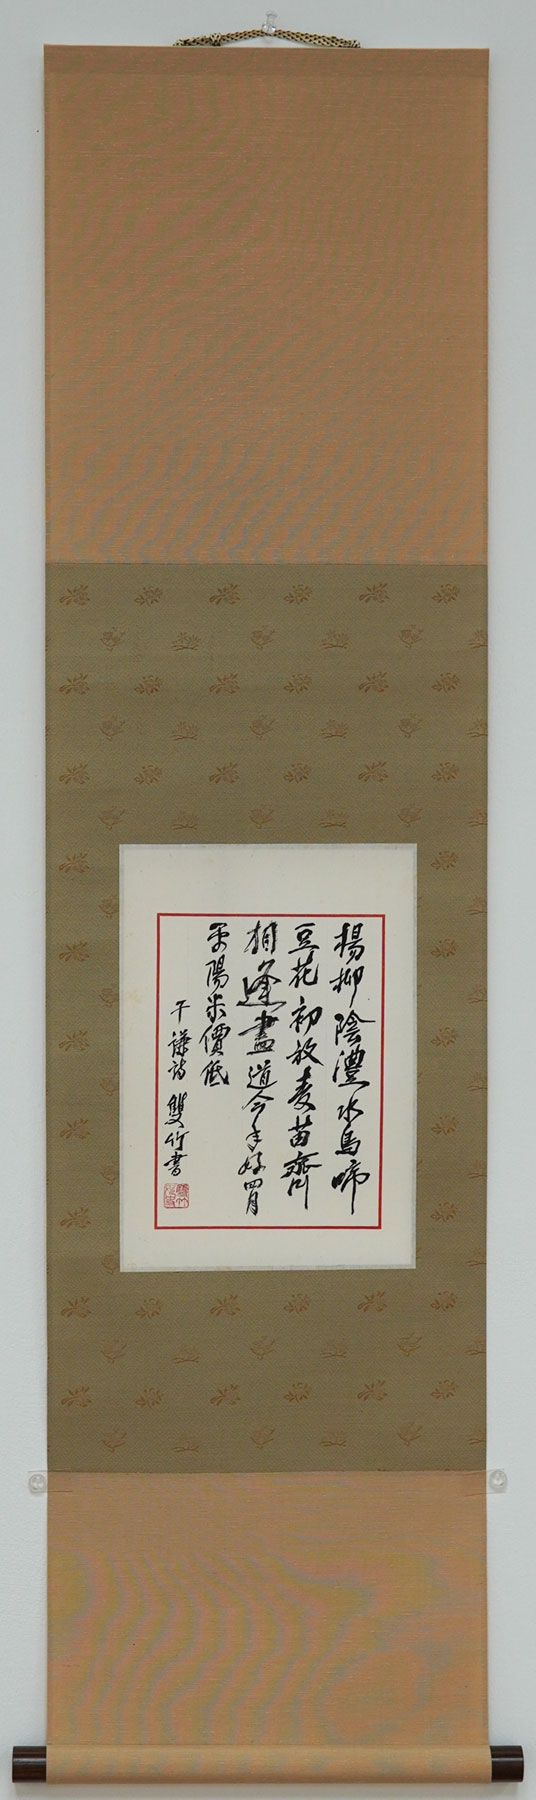 楊柳陰濃水馬啼
豆花初放麦苗齊
相逢盡道今年好四月
平陽米價低
于謙詩 雙竹書